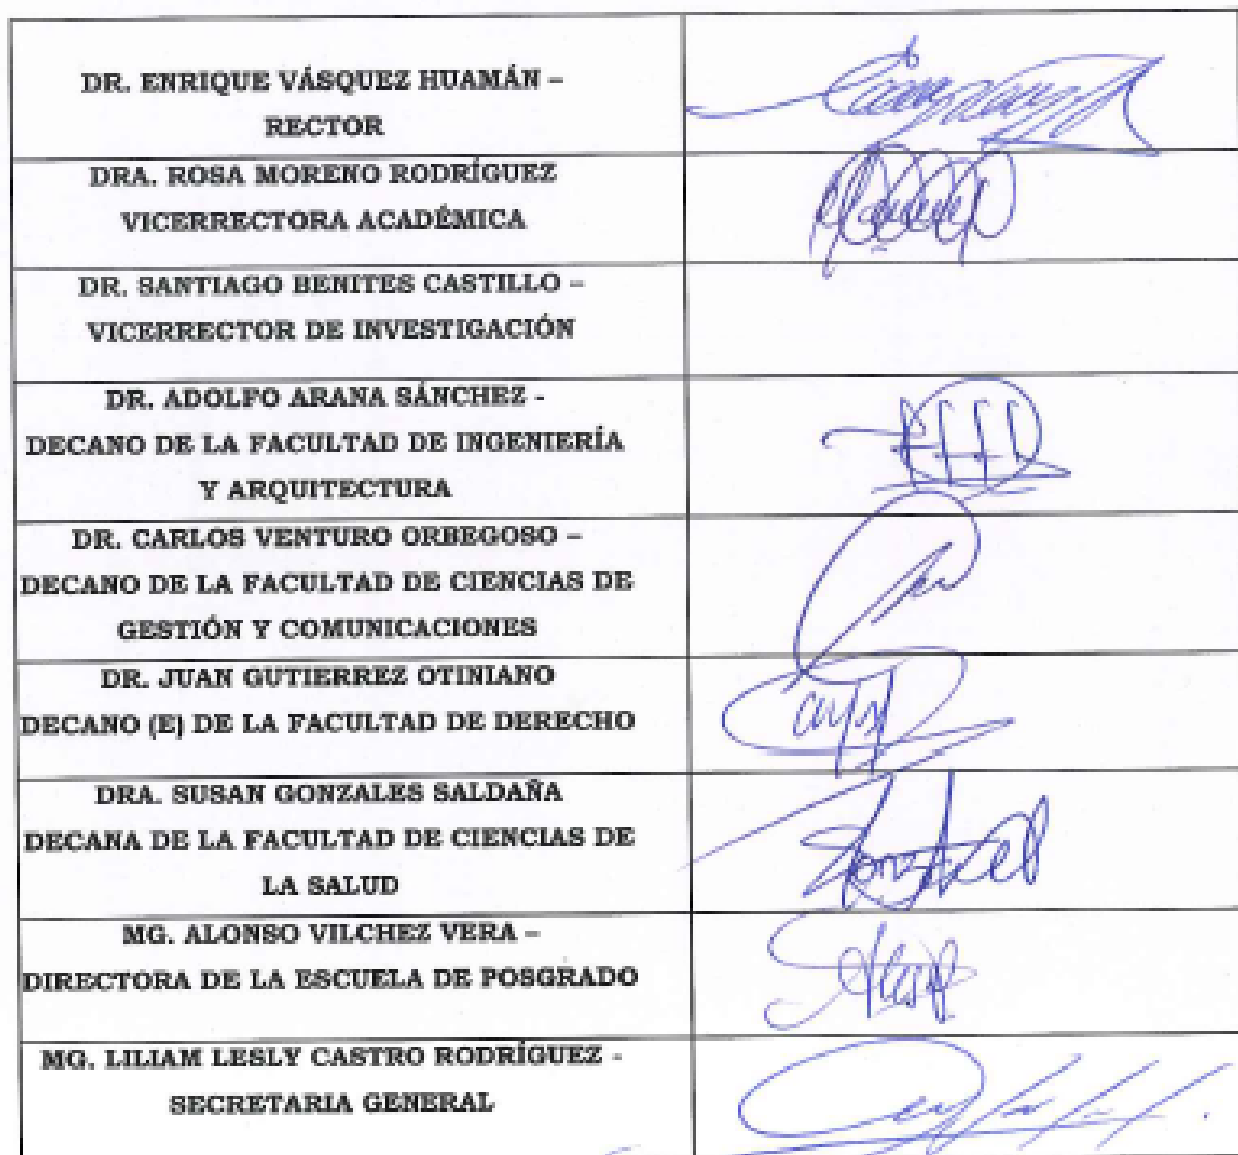 DR. ENRIQUE VÁSQUEZ HUAMÁN –
RECTOR
DRA. ROSA MORENO RODRÍGUEZ
VICERRECTORA ACADÉMICA
DR. SANTIAGO BENITES CASTILLO –
VICERRECTOR DE INVESTIGACIÓN
DR. ADOLFO ARANA SÁNCHEZ -
DECANO DE LA FACULTAD DE INGENIERÍA
Y ARQUITECTURA
DR. CARLOS VENTURO ORBEGOSO –
DECANO DE LA FACULTAD DE CIENCIAS DE
GESTIÓN Y COMUNICACIONES
DR. JUAN GUTIERREZ OTINIANO
DECANO (E) DE LA FACULTAD DE DERECHO
DRA. SUSAN GONZALES SALDAÑA
DECANA DE LA FACULTAD DE CIENCIAS DE
LA SALUD
MG. ALONSO VILCHEZ VERA –
DIRECTORA DE LA ESCUELA DE POSGRADO
MG. LILIAM LESLY CASTRO RODRÍGUEZ -
SECRETARIA GENERAL